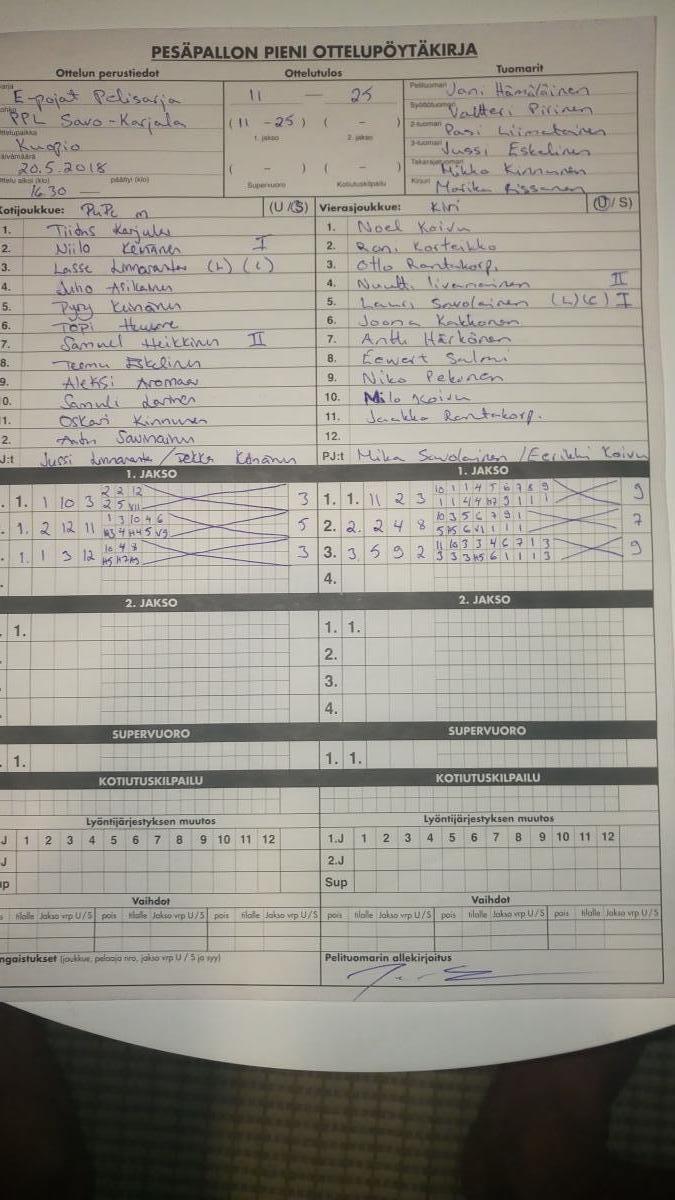 PESÄPALLON PIENI OTTELUPÖYTÄKIRJA
Ottelun perustiedot Ottelutulos Tuomarit
E-pojat Pelisarja
PPL Savo-Karjala
Kuopio
20.5.2018
Ottelu alkoi (klo) päättyi (klo)
16.30 —
11 — 25
(11 - 25) ( - )
1. jakso 2. jakso
( - ) ( - )
Supervuoro Kotiutuskilpailu
Pelituomari Jani Hämäläinen
Syöttötuomari Valtteri Piirinen
2-tuomari Pasi Liimatainen
3-tuomari Jussi Eskelinen
Takarajatuomari Mikko Kinnunen
Kirjuri Marika Rissanen
Kotijoukkue: PuPe m (U/S)
1. Karjula
2. Niilo Keinänen I
3. Lasse Linnaranta (L) (C)
4. Juho Asikainen
5. Pyry Keinänen
6. Topi
7. Samuel Heikkinen II
8. Teemu Eskelinen
9. Aleksi Aromaa
0. Samuli
1. Oskari Kinnunen
2.
PJ:t Jussi Linnaranta / Pekka Keinänen
Vierasjoukkue: Kiri (U/S)
1. Noel Koivu
2. Roni Korteikko
3. Otto Rantakorp.
4. Iivanainen II
5. Lauri Savolainen (L)(C) I
6. Joona Kakkonen
7. Antti Härkönen
8. Eewert Salmi
9. Niko Pekonen
10. Milo Koivu
11. Jaakko Rantakorp.
12.
PJ:t Mika Savolainen / Eerikki Koivu
1. JAKSO
1. 1 10 3 2 2 12 3
2 5 VII
1. 2 12 11 1 3 10 4 6 5
H3 4 H4 5 V9
1. 1 3 12 10 4 8 3
H5 H7 H9
1. JAKSO
1. 1. 11 2 3 10 1 1 4 5 6 7 8 9 9
1 1 4 4 H7 9 1 1 1
2. 2. 2 4 8 10 3 5 6 7 9 1 7
5 H5 6 V1 1 1 1
3. 3. 5 9 2 11 10 3 3 4 6 7 1 3 9
3 3 3 H5 6 1 1 1 3
4.
2. JAKSO 2. JAKSO
1. 1. 1.
2.
3.
4.
SUPERVUORO SUPERVUORO
1. 1. 1.
KOTIUTUSKILPAILU KOTIUTUSKILPAILU
Lyöntijärjestyksen muutos Lyöntijärjestyksen muutos
J 1 2 3 4 5 6 7 8 9 10 11 12 1.J 1 2 3 4 5 6 7 8 9 10 11 12
J 2.J
up Sup
Vaihdot Vaihdot
s tilalle Jakso vrp U/S pois tilalle Jakso vrp U/S pois tilalle Jakso vrp U/S pois tilalle Jakso vrp U/S pois tilalle Jakso vrp U/S pois tilalle Jakso vrp U/S
ngaistukset (joukkue, pelaaja nro, jakso vrp U / S ja syy) Pelituomarin allekirjoitus